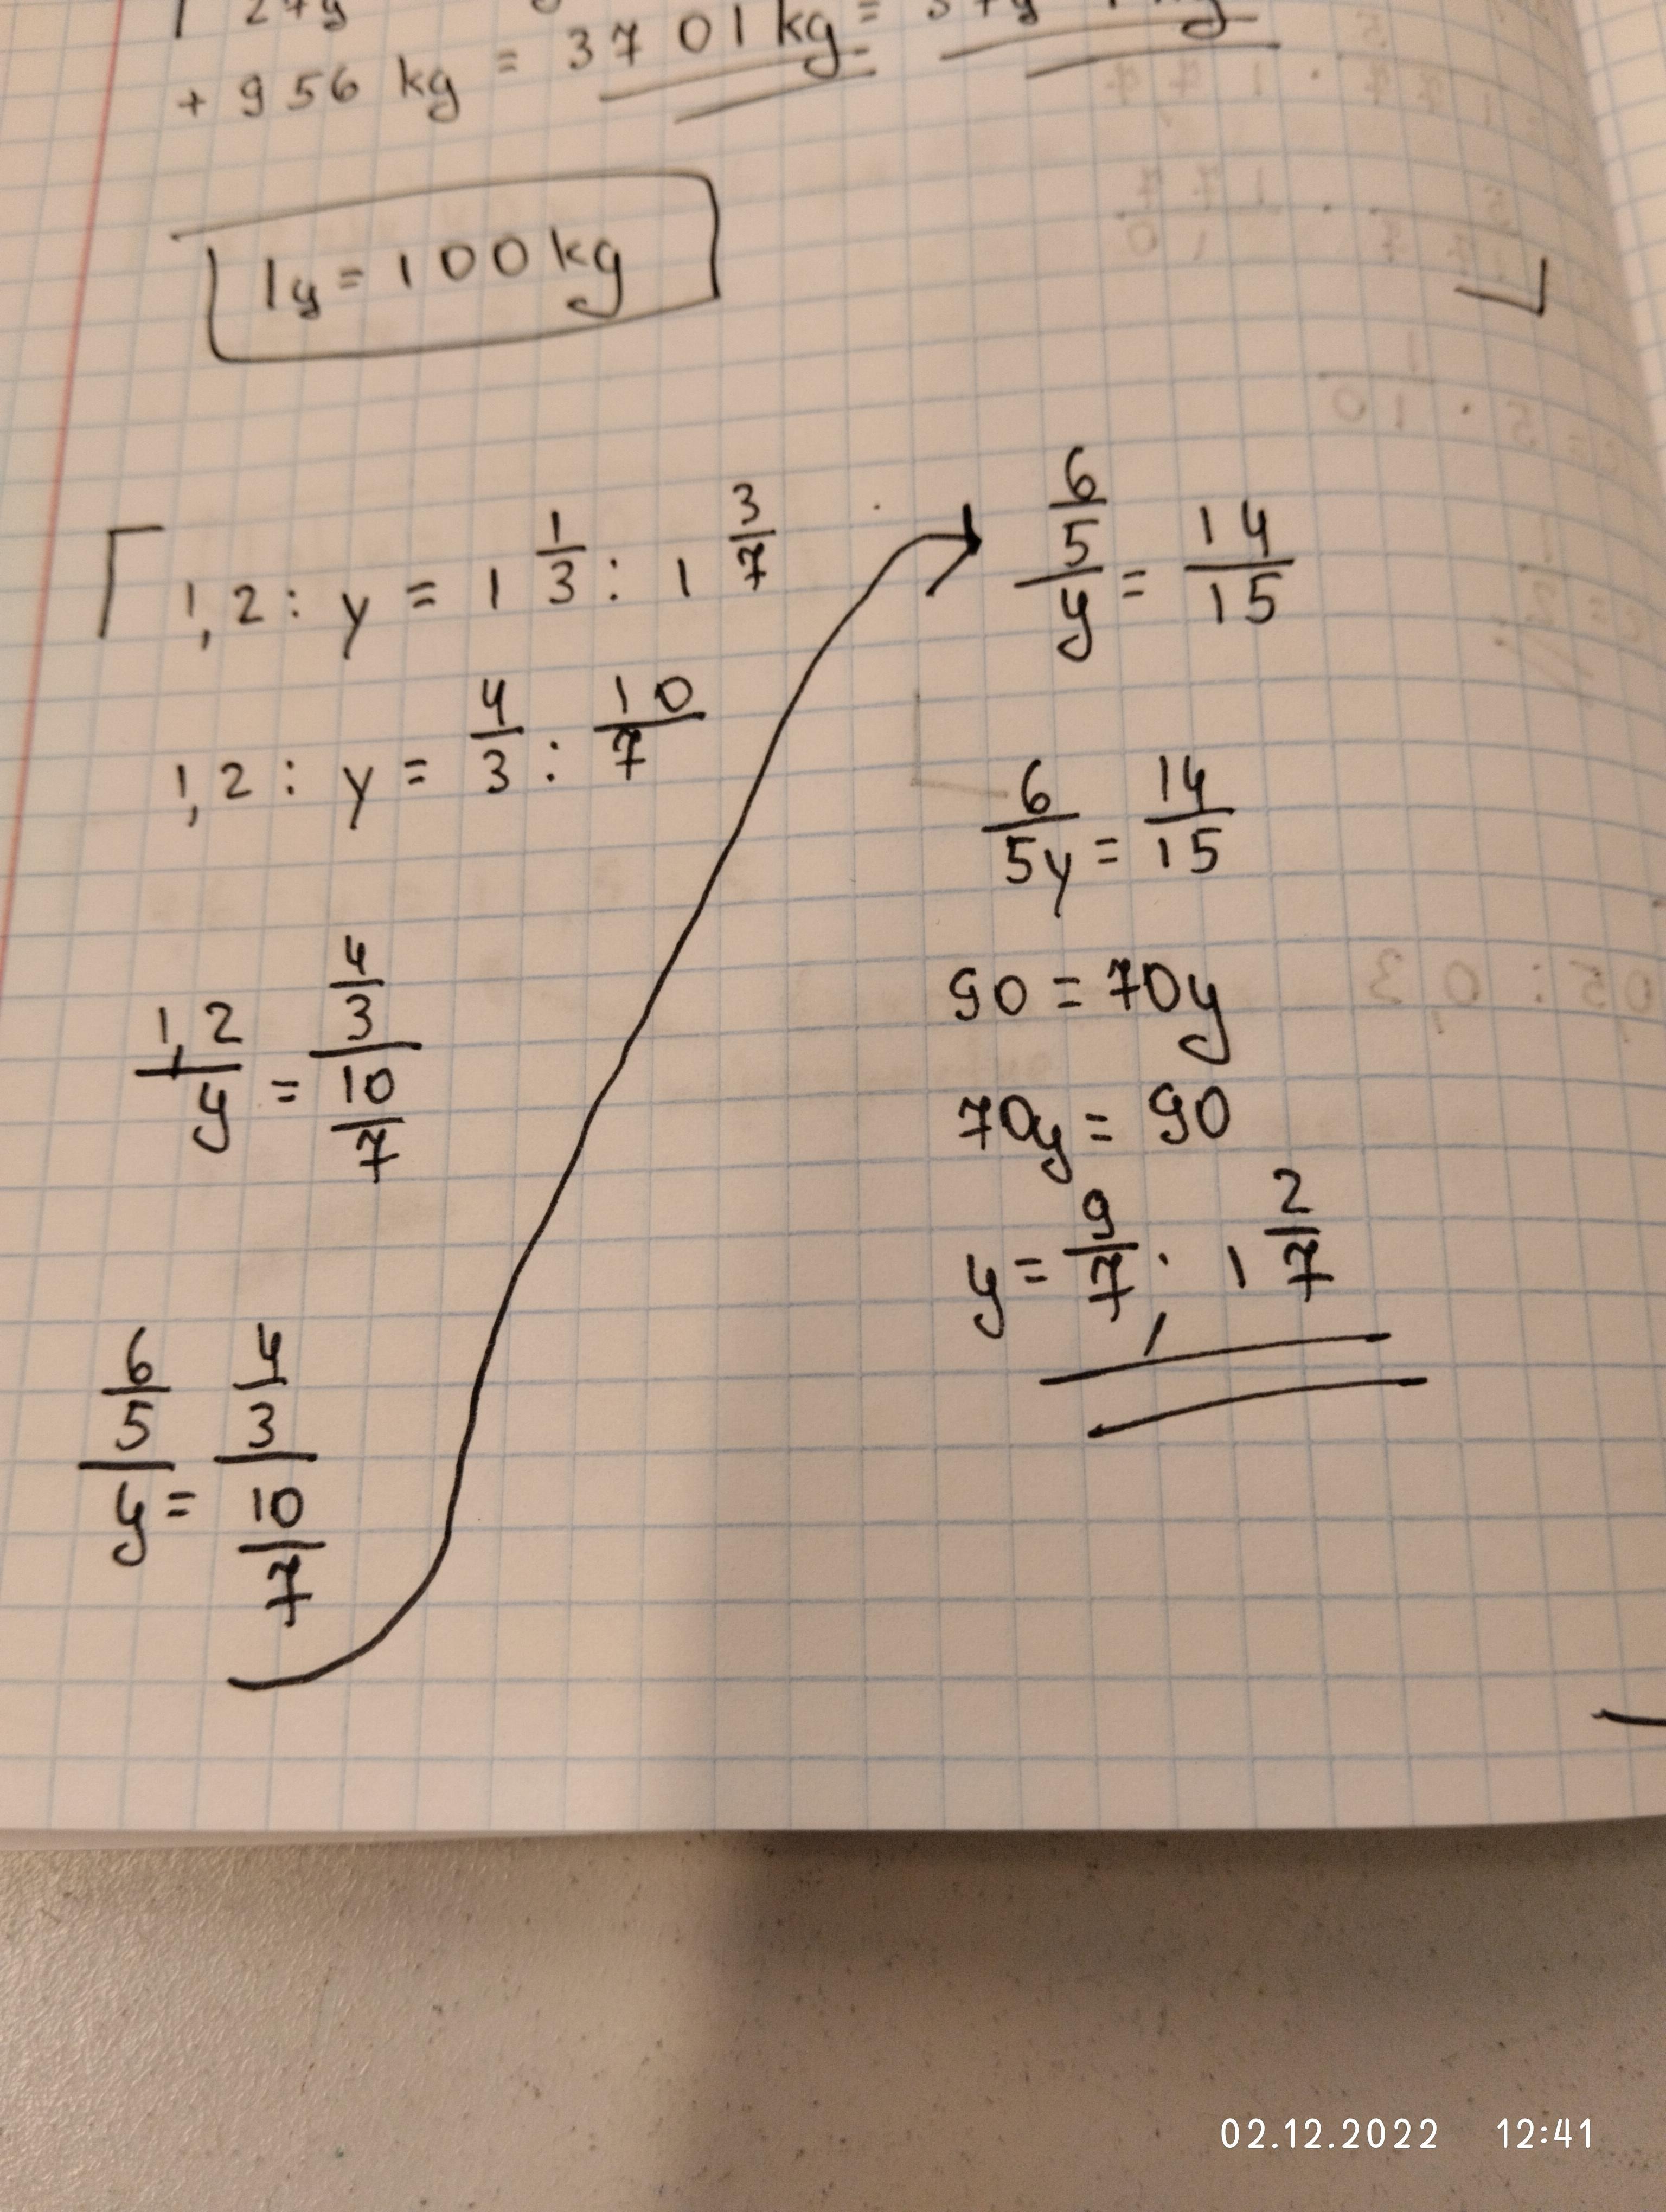 + 956 kg = 3701 kg =
1y = 100 kg
1,2 : y = 1 1/3 : 1 3/7
1,2 : y = 4/3 : 10/7
1,2/y = 4/3/10/7
6/5/y = 4/3/10/7
6/5/y = 14/15
6/5y = 14/15
90 = 70y
70y = 90
y = 9/7 ; 1 2/7
02.12.2022 12:41